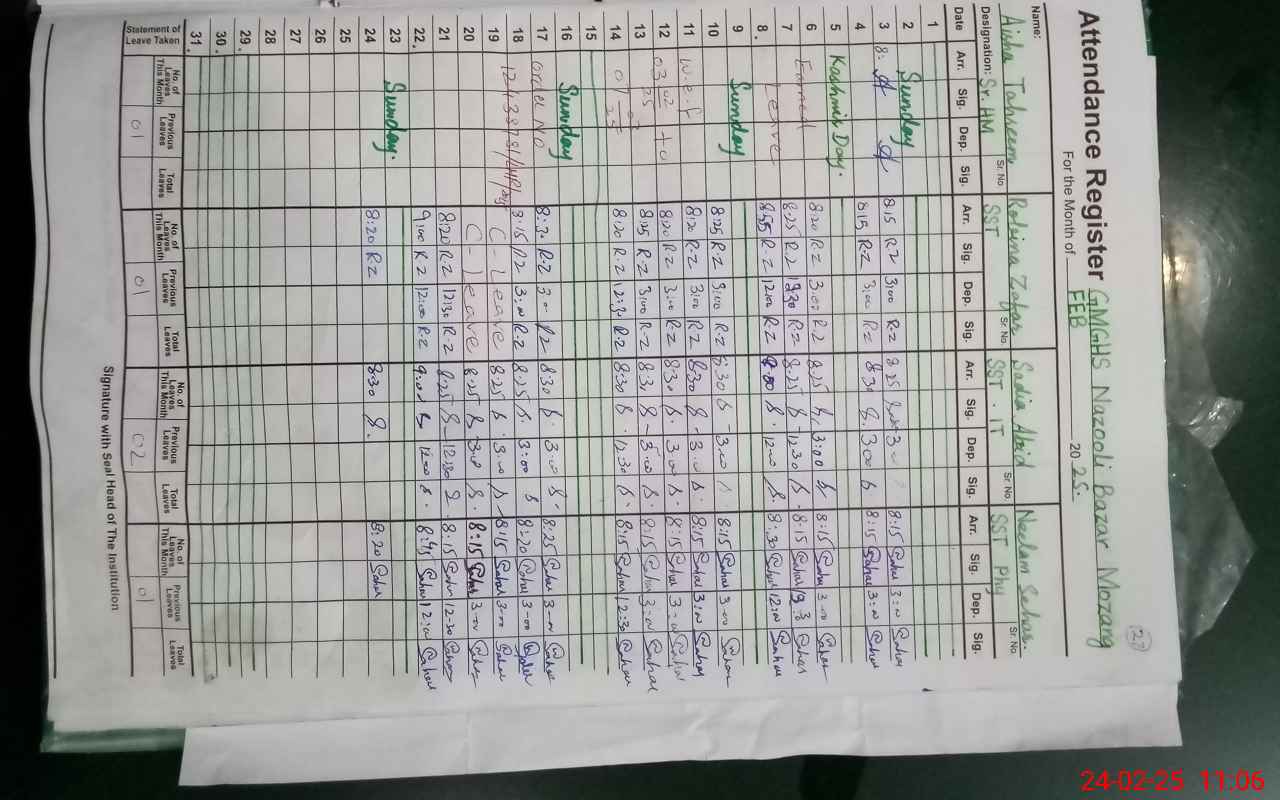 (27)
Attendance Register GMGHS Nazooli Bazar Mozang
For the Month of FEB 2025.
Name: Aisha Tahseem Robina Zafar Sadia Abid Neelam Sahar.
Designation: Sr. HM Sr. No. SST Sr. No. SST . IT Sr. No. SST Phy Sr. No.
Date Arr. Sig. Dep. Sig. Arr. Sig. Dep. Sig. Arr. Sig. Dep. Sig. Arr. Sig. Dep. Sig.
1
2 Sunday 8:15 R.Z 3:00 R.Z 8:25 3:00 8:15 Sahar 3:00 Sahar
3 8:15 R.Z 3:00 R.Z 8:30 3:00 8:15 Sahar 3:00 Sahar
4
5 Kashmir Day. 8:20 R.Z 3:00 R.Z 8:25 3:00 8:15 Sahar 3:00 Sahar
6 Earned 8:25 R.Z R.Z 8:25 12:30 8:15 Sahar Sahar
7 Leave 8:55 R.Z 12:00 R.Z 8:30 12:00 8:30 Sahar 12:00 Sahar
8.
9 Sunday 8:25 R.Z 3:00 R.Z 8:30 3:00 8:15 Sahar 3:00 Sahar
10 8:20 R.Z 3:00 R.Z 8:30 3:00 8:15 Sahar 3:00 Sahar
11 w.e.f 8:20 R.Z 3:00 R.Z 8:30 3:00 8:15 Sahar 3:00 Sahar
12 03/02/25 to 8:25 R.Z 3:00 R.Z 8:30 3:00 8:15 Sahar 3:00 Sahar
13 8:20 R.Z 12:30 R.Z 8:30 12:30 8:15 Sahar 12:30 Sahar
14
15
16 Sunday 8:30 R.Z 3:00 R.Z 8:30 3:00 8:25 Sahar 3:00 Sahar
17 order No 8:15 R.Z 3:00 R.Z 8:25 3:00 8:20 Sahar 3:00 Sahar
18 C-Leave 8:25 3:00 8:15 Sahar 3:00 Sahar
19 C-Leave 8:25 3:00 8:15 Sahar 3:00 Sahar
20 8:20 R.Z 12:30 R.Z 8:25 12:30 8:15 Sahar 12:30 Sahar
21 9:00 R.Z 12:00 R.Z 9:00 12:00 8:45 Sahar 12:00 Sahar
22.
23 Sunday. 8:20 R.Z 8:30 8:20 Sahar
24
25
26
27
28
29.
30.
31.
Statement of Leave Taken No. of Leaves This Month Previous Leaves Total Leaves No. of Leaves This Month Previous Leaves Total Leaves No. of Leaves This Month Previous Leaves Total Leaves No. of Leaves This Month Previous Leaves Total Leaves
01 01 02 01
Signature with Seal Head of The Institution
24-02-25 11:06